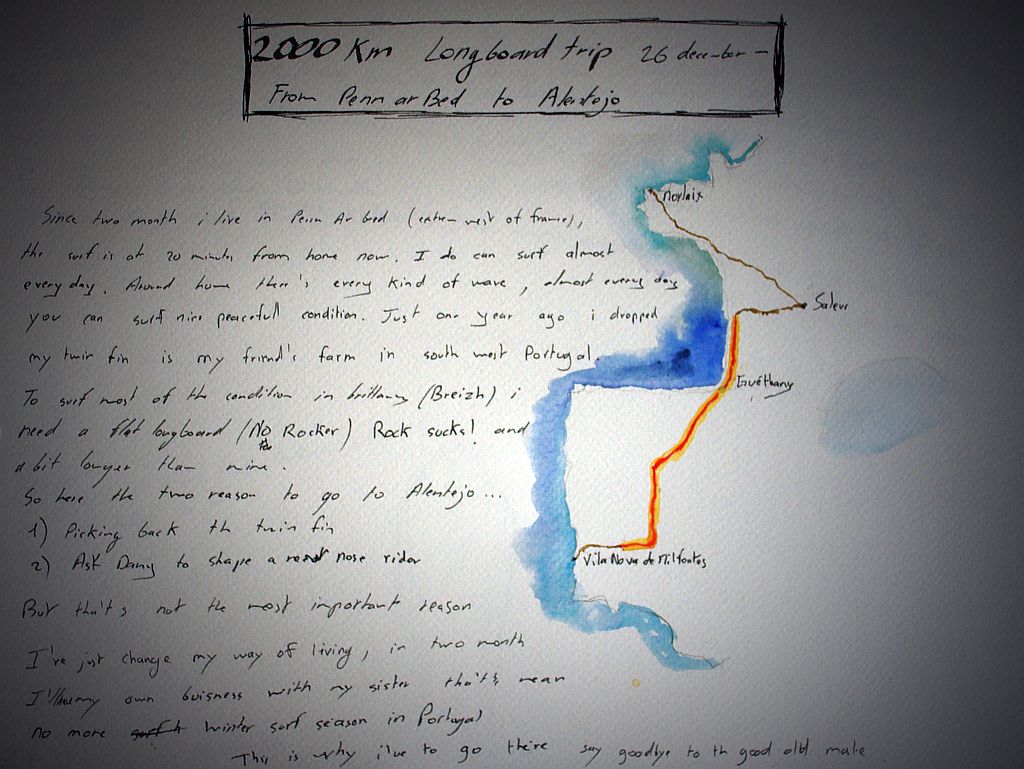 2000 Km Longboard trip 26 december -
From Penn ar Bed to Alentejo
Morlaix
Since two month i live in Penn Ar bed (extrem west of france),
the surf is at 20 minutes from home now. I do can surf almost
every day. Around home there's every kind of wave, almost every day
Saleux
you can surf nice peacefull condition. Just one year ago i dropped
my twin fin is my friend's farm in south west Portugal.
Guéthary
To surf most of the condition in brittanny (Breizh) i
need a flat longboard (No Rocker) Rock sucks! and
a bit longer than mine.
So here the two reason to go to Alentejo...
1) Picking back th twin fin
2) Ask Dany to shape a nose rider
Vila Nova de Milfontes
But that's not the most important reason
I've just change my way of living, in two month
I'll have my own buisness with my sister that's mean
no more winter surf season in Portugal
This is why i've to go there say goodbye to th good old mate